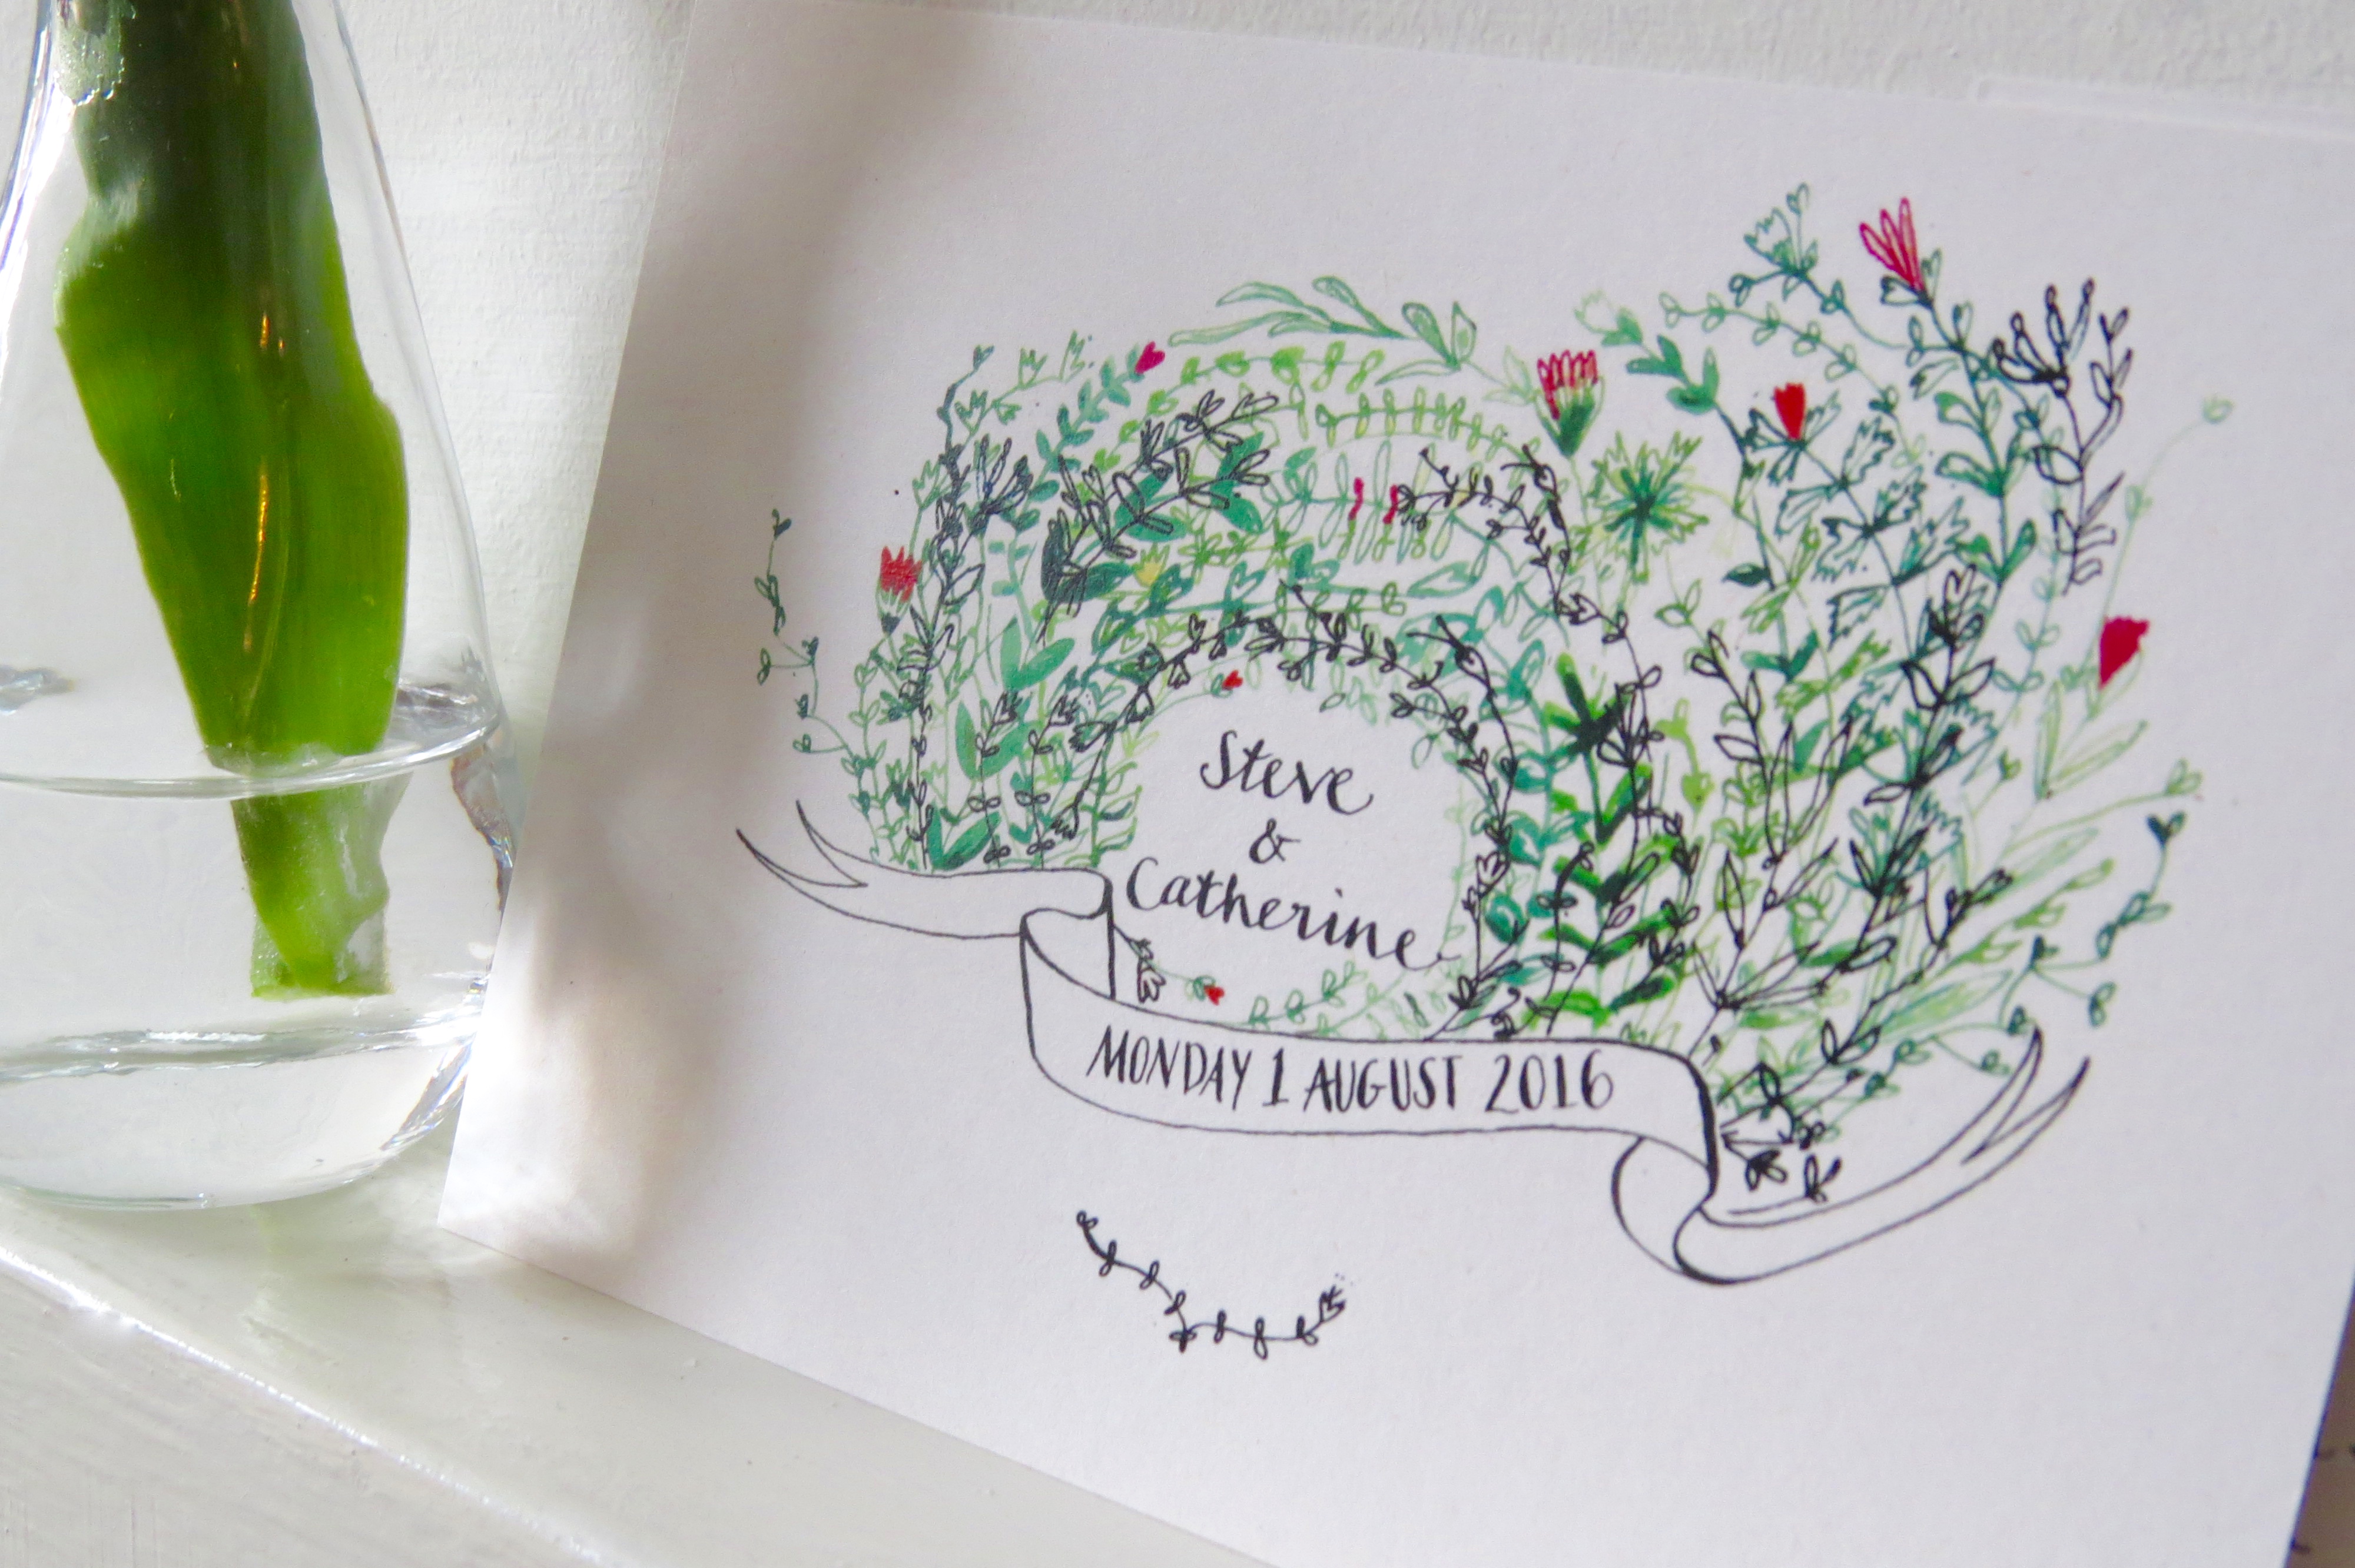 Steve
&
Catherine
MONDAY 1 AUGUST 2016